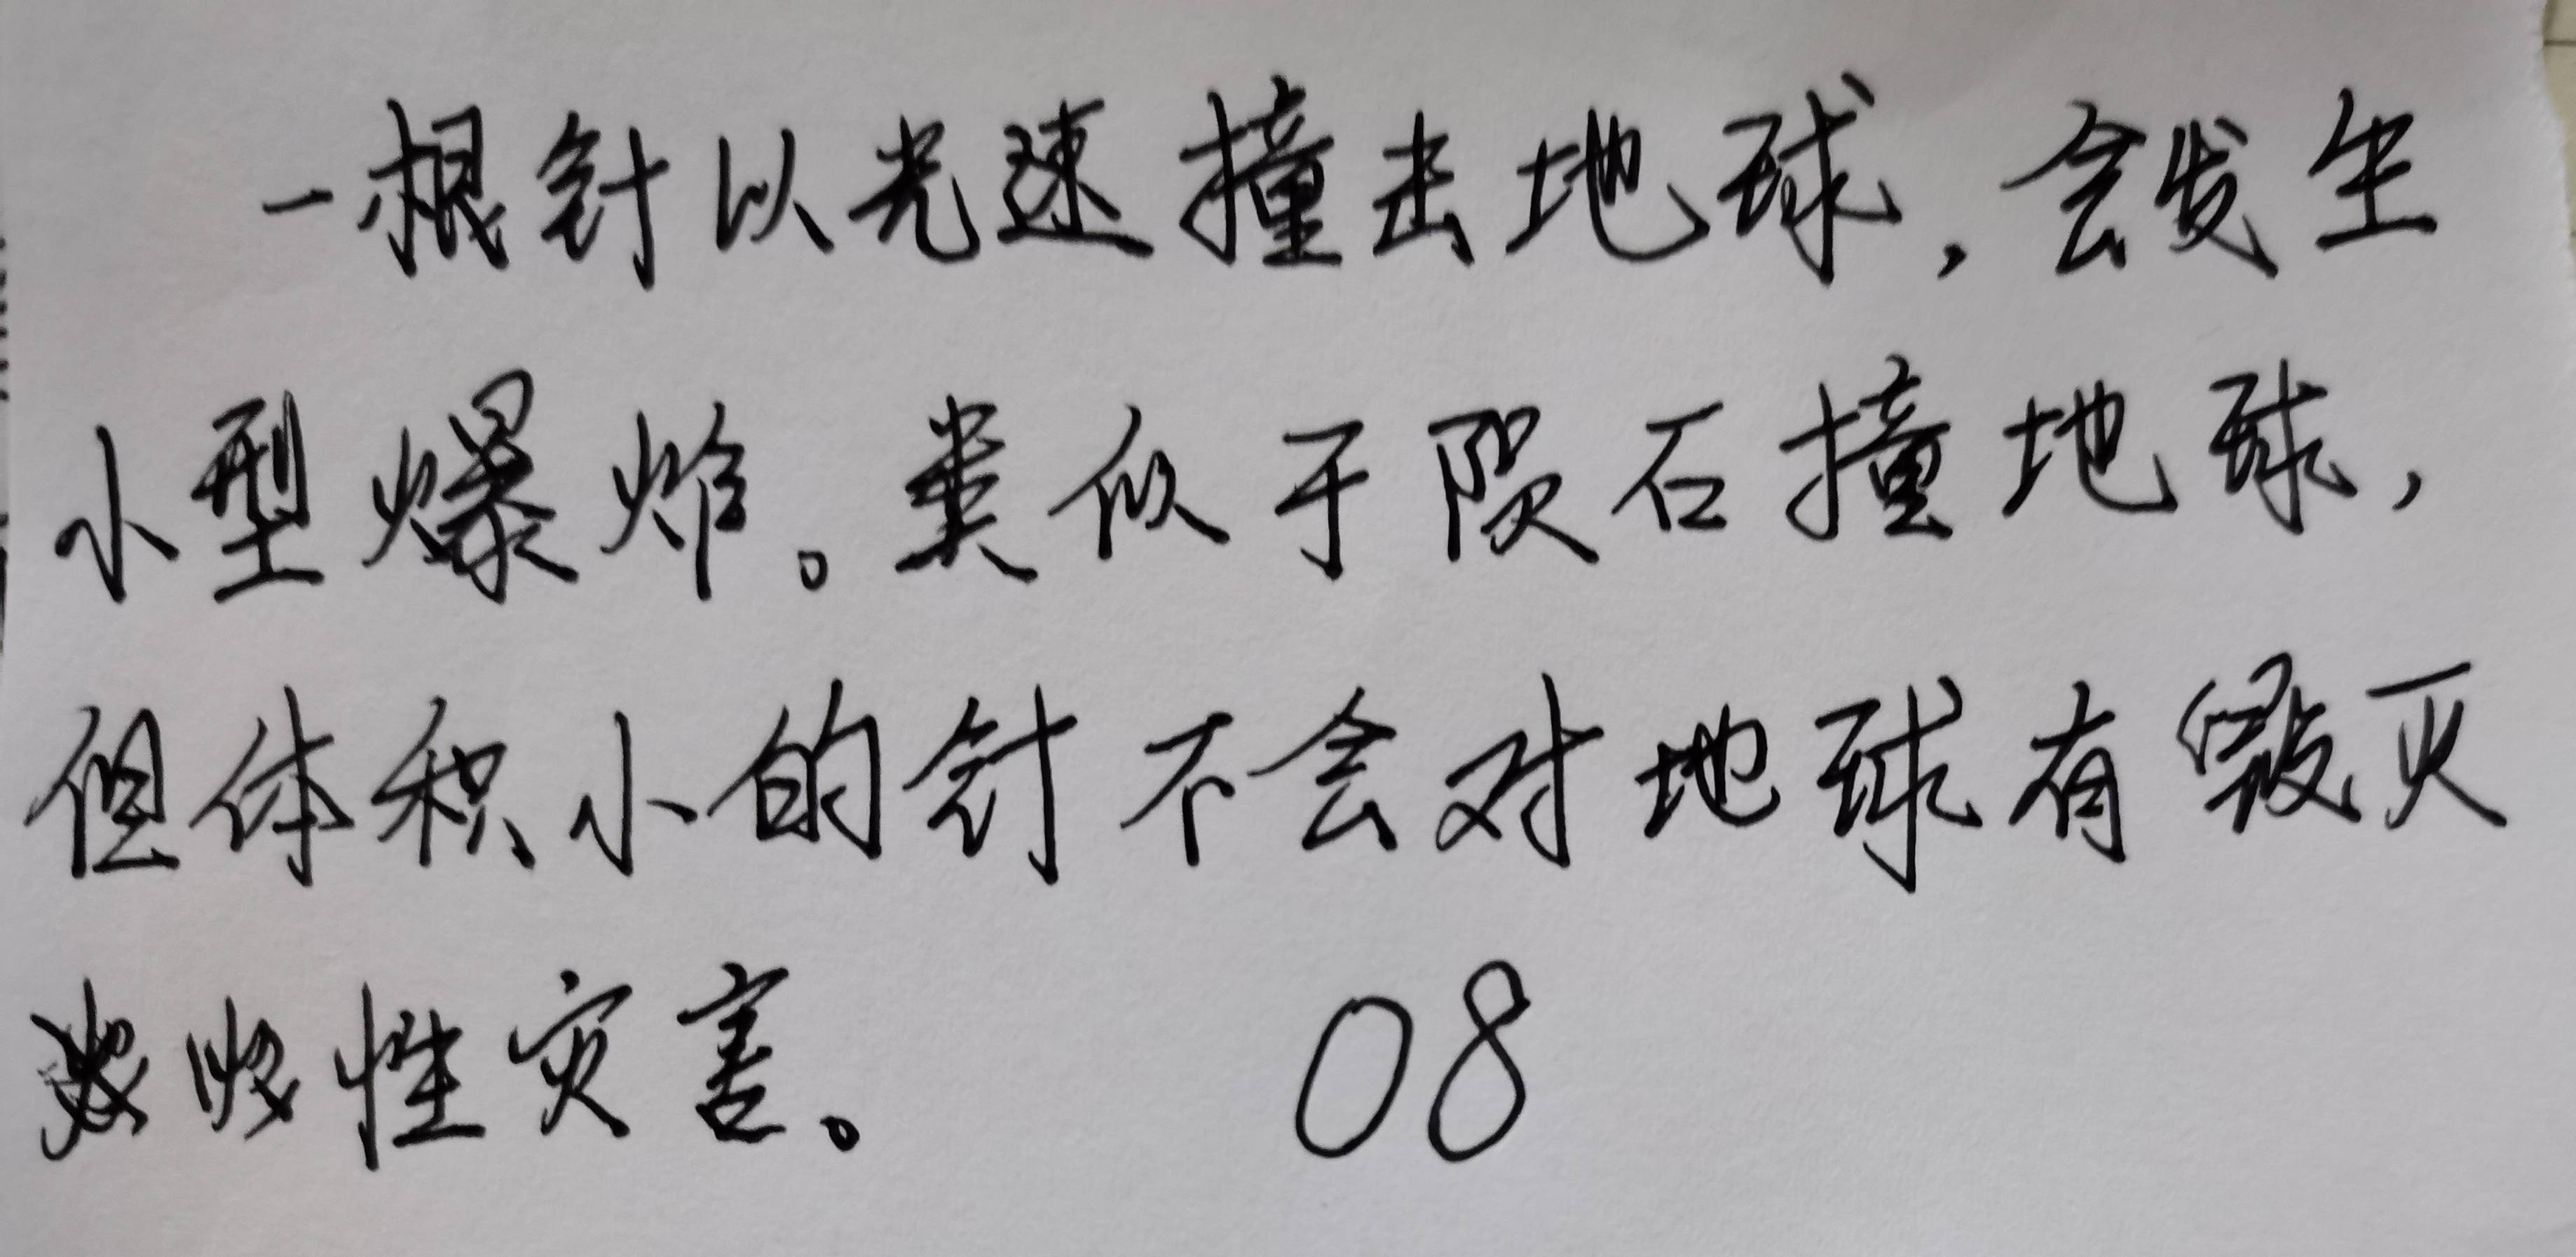 一根针以光速撞击地球，会发生
小型爆炸。类似于陨石撞地球，
但体积小的针不会对地球有毁灭
性灾害。 08